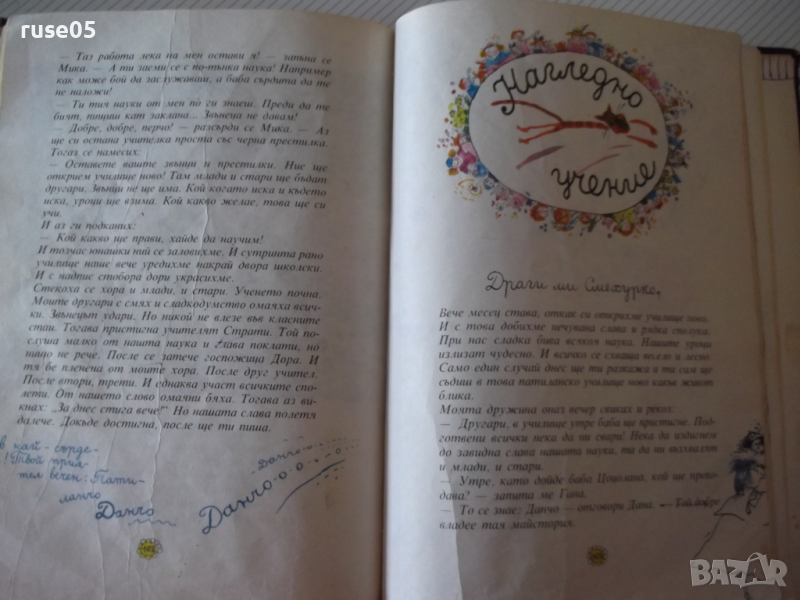 ruse05
— Таз работа лека на мен остави я! — затъна се
Мика. — А ти заеми се с по-тънка наука! Например
как може бой да заслужаваш, а баба сърдита да те
не наложи!
— Ти тия науки от мен по ги знаеш. Преди да те
бият, пищиш кат заклана... Звънеца не давам!
— Добре, добре, перчо! — разсърди се Мика. — Аз
ще си остана учителка проста със черна престилка.
Тогаз се намесих:
— Оставете вашите звънци и престилки. Ние ще
открием училище ново! Там млади и стари ще бъдат
другари. Звънци не ще има. Кой когато иска и където
иска, уроци ще взима. Кой какво желае, това ще си
учи.
И аз ги подканих:
— Кой какво ще прави, хайде да научим!
И тозчас юнайки ний се заловихме. И сутринта рано
училище наше вече уредихме накрай двора школски.
И с надпис стобора дори украсихме.
Стекоха се хора и млади, и стари. Ученето почна.
Моите другари с смях и сладкодумство омаяха всич-
ки. Звънецът удари. Но никой не влезе във класните
стаи. Тогава пристигна учителят Страти. Той по-
слуша малко от нашта наука и глава поклати, но
нищо не рече. После се затече госпожица Дора. И
тя бе пленена от моите хора. После друг учител.
После втори, трети. И еднаква участ всичките спо-
лети. От нашето слово омайни бяха. Тогава аз ви-
кнах: „За днес стига вече!" Но нашата слава полетя
далече. Докъде достигна, после ще ти пиша.
в най-сърде-
! Твой прия-
тел вечен: Пати-
ланчо
Данчо
Данчо-о-...-о
Данчо-о-о-...о
Нагледно
учение
Драги ми Смехурко,
Вече месец става, откак си открихме училище ново.
И с това добихме нечувана слава и рядка сполука.
При нас сладка бива всякоя наука. Нашите уроци
излизат чудесно. И всичко се схваща весело и лесно.
Само един случай днес ще ти разкажа и ти сам ще
съдиш в това патиланско училище ново как животът
блика.
Моята дружина оназ вечер свиках и рекох:
— Другари, в училище утре баба ще пристигне. Под-
готвени всички нека да ни свари! Нека да издигнем
до завидна слава нашата наука, та да ни възхвалят
и млади, и стари.
— Утре, като дойде баба Цоцолана, кой ще препо-
дава? — запита ме Гана.
— То се знае: Данчо — отговори Дана. — Той добре
владее тая майстория.
BAZAR
.bg